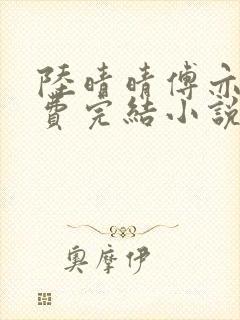 陸晴晴傅亦
費完結小說
奧摩伊